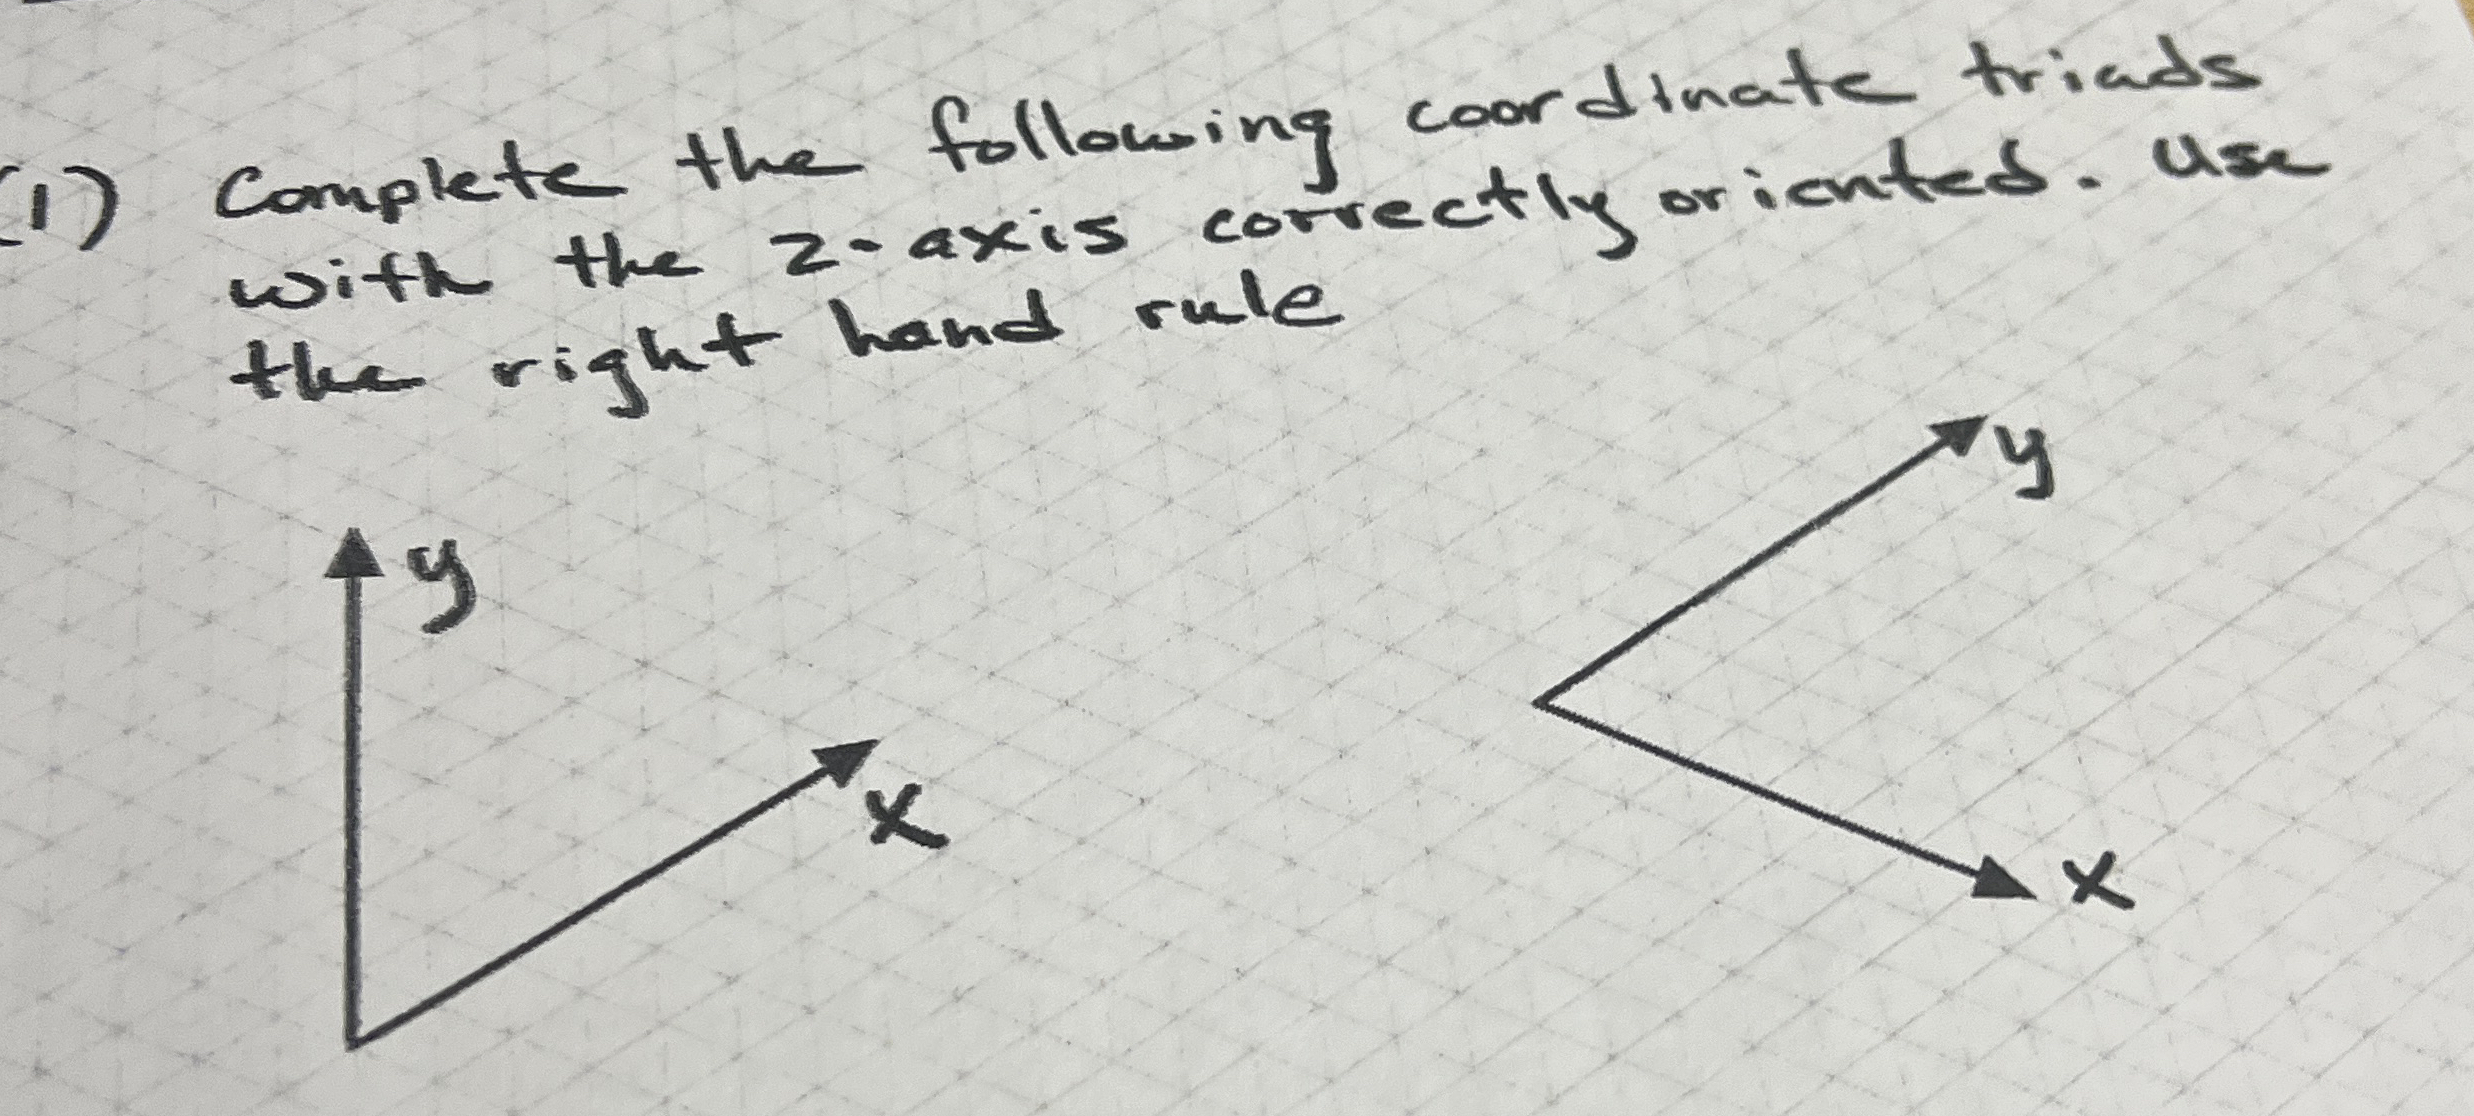 (1) Complete the following coordinate triads
with the z-axis correctly oriented. Use
the right hand rule
y
y
x
x